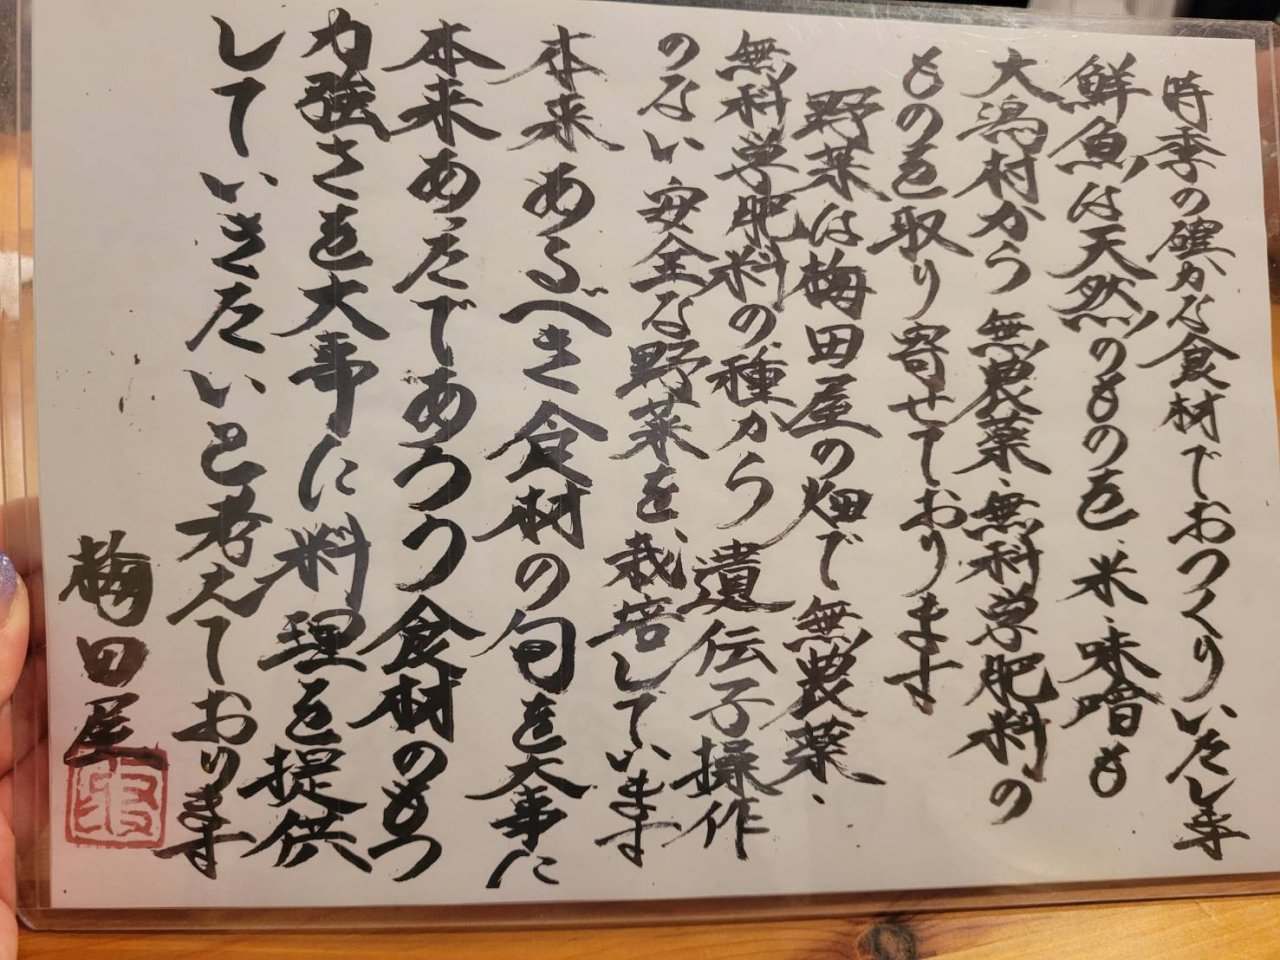 時季の確かな食材でおつくりいたします
鮮魚は天然のものを、米・味噌も
大潟村から無農薬・無科学肥料の
ものを取り寄せております
野菜は梅田屋の畑で無農薬・
無科学肥料の種から遺伝子操作
のない安全な野菜を、栽培しています
本来あるべき食材の旬を大事に
本来あったであろう食材のもつ
力強さを大事に料理を提供
していきたいと考えております
梅田屋